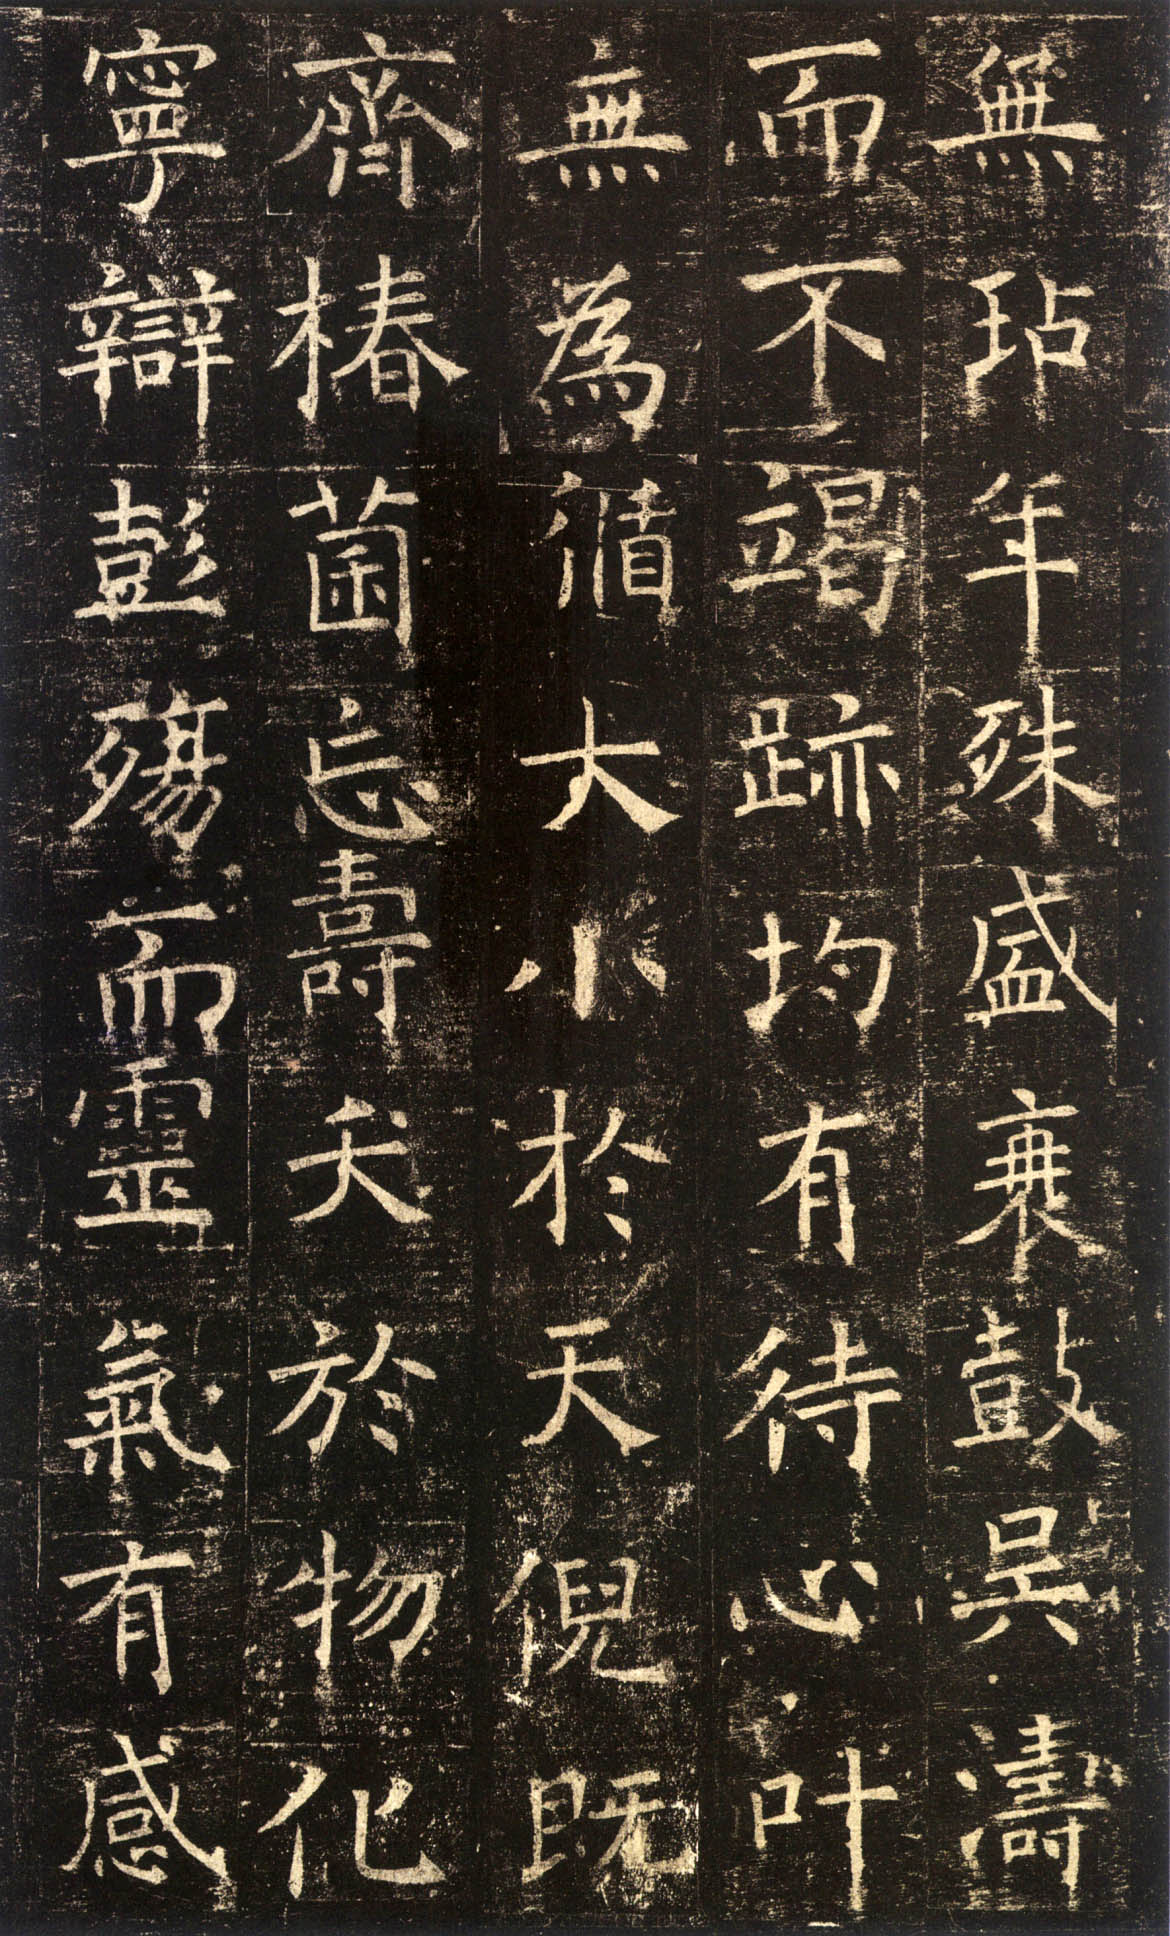 無玷年殊盛衰鼓吴濤
而不竭跡均有待心叶
無為循大小於天倪既
齊椿菌忘壽夭於物化
寧辯彭殤而靈氣有感